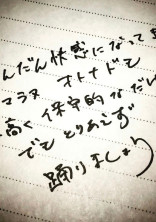 んだん快感になって
オトナドモ
マラヌ 保守的な
高く
でも とりあえず
踊りましょう